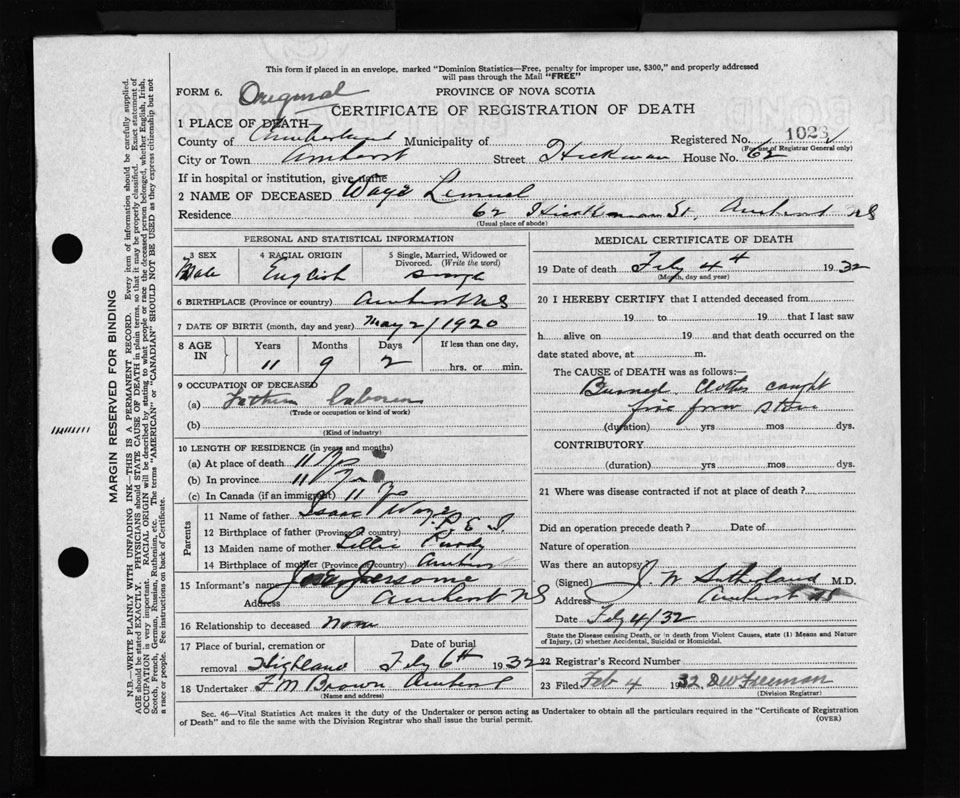 This form if placed in an envelope, marked "Dominion Statistics—Free, penalty for improper use, $300," and properly addressed
will pass through the Mail "FREE"
FORM 6. Original PROVINCE OF NOVA SCOTIA
CERTIFICATE OF REGISTRATION OF DEATH
1 PLACE OF DEATH
County of Cumberland Municipality of Registered No. 1023
(For use of Registrar General only)
City or Town Amherst Street Hickman House No. 62
If in hospital or institution, give name
2 NAME OF DECEASED Waye Lemuel
Residence 62 Hickman St, Amherst NS
(Usual place of abode)
PERSONAL AND STATISTICAL INFORMATION
3 SEX 4 RACIAL ORIGIN 5 Single, Married, Widowed or
Divorced. (Write the word)
Male English Single
6 BIRTHPLACE (Province or country) Amherst NS
7 DATE OF BIRTH (month, day and year) May 2/1920
8 AGE IN Years Months Days If less than one day,
11 9 2 hrs. or min.
9 OCCUPATION OF DECEASED
(a) Father laborer
(Trade or occupation or kind of work)
(b)
(Kind of industry)
10 LENGTH OF RESIDENCE (in years and months)
(a) At place of death 11 Yrs
(b) In province 11 Yrs
(c) In Canada (if an immigrant) 11 Yrs
Parents
11 Name of father Isaac Waye
12 Birthplace of father (Province or country) P.E.I
13 Maiden name of mother Lillie Purdy
14 Birthplace of mother (Province or country) Amherst
15 Informant's name
Address Amherst NS
16 Relationship to deceased None
17 Place of burial, cremation or Date of burial
removal Highland Feby 6th 1932
18 Undertaker F M Brown Amherst
(Name and address)
MEDICAL CERTIFICATE OF DEATH
19 Date of death Feby 4th 1932
(Month, day and year)
20 I HEREBY CERTIFY that I attended deceased from
19 to 19 that I last saw
h alive on 19 and that death occurred on the
date stated above, at m.
The CAUSE of DEATH was as follows:—
Burned. Clothes caught
fire from stove
(duration) yrs mos dys.
CONTRIBUTORY
(duration) yrs mos dys.
21 Where was disease contracted if not at place of death?
Did an operation precede death? Date of
Nature of operation
Was there an autopsy
(Signed) J. W Sutherland M.D.
Address Amherst NS
Date Feby 4/32
State the Disease causing Death, or in death from Violent Causes, state (1) Means and Nature
of Injury, (2) whether Accidental, Suicidal or Homicidal.
22 Registrar's Record Number
23 Filed Feb 4 1932 Freeman
(Division Registrar)
Sec. 46—Vital Statistics Act makes it the duty of the Undertaker or person acting as Undertaker to obtain all the particulars required in the "Certificate of Registration
of Death" and to file the same with the Division Registrar who shall issue the burial permit. (OVER)
MARGIN RESERVED FOR BINDING
N.B.—WRITE PLAINLY WITH UNFADING INK—THIS IS A PERMANENT RECORD. Every item of information should be carefully supplied.
AGE should be stated EXACTLY. PHYSICIANS should STATE CAUSE OF DEATH in plain terms, so that it may be properly classified. Exact statement of
OCCUPATION is very important. RACIAL ORIGIN will be described by stating to what people or race the deceased person belonged, whether English, Irish,
Scotch, French, German, Russian, Ruthenian, etc. The terms "AMERICAN" or "CANADIAN" SHOULD NOT BE USED as they express citizenship but not
a race or people. See instructions on back of Certificate.